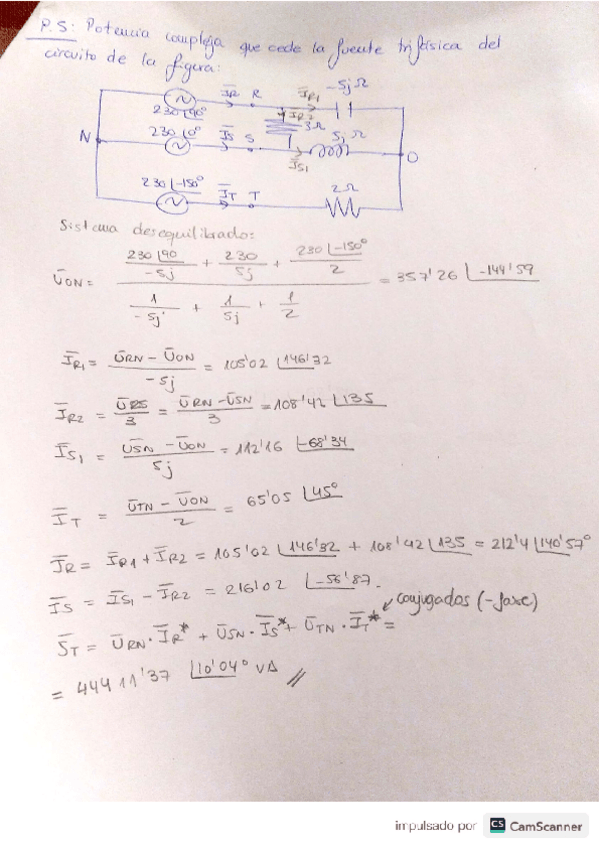 P.5: Potencia compleja que cede la fuente trifásica del
circuito de la figura:
I̅R R I̅R1 -5j Ω
230∟90° I̅R2 3Ω 5j Ω
N 230∟0° I̅S S I̅S1 O
230∟-150° I̅T T 2Ω
Sistema desequilibrado:
U̅ON = (230∟90/-5j + 230/5j + 230∟-150°/2) / (1/-5j + 1/5j + 1/2) = 357'26 ∟-144'59
I̅R1 = (U̅RN - U̅ON)/-5j = 105'02 ∟146'32
I̅R2 = U̅RS/3 = (U̅RN - U̅SN)/3 = 108'42 ∟135
I̅S1 = (U̅SN - U̅ON)/5j = 112'16 ∟-68'34
I̅T = (U̅TN - U̅ON)/2 = 65'05 ∟45°
I̅R = I̅R1 + I̅R2 = 105'02 ∟146'32 + 108'42 ∟135 = 212'4 ∟140'57°
I̅S = I̅S1 - I̅R2 = 216'02 ∟-56'87.
conjugados (-fase)
S̅T = U̅RN · I̅R* + U̅SN · I̅S* + U̅TN · I̅T* =
= 44411'37 ∟10'04° VA //
impulsado por CS CamScanner